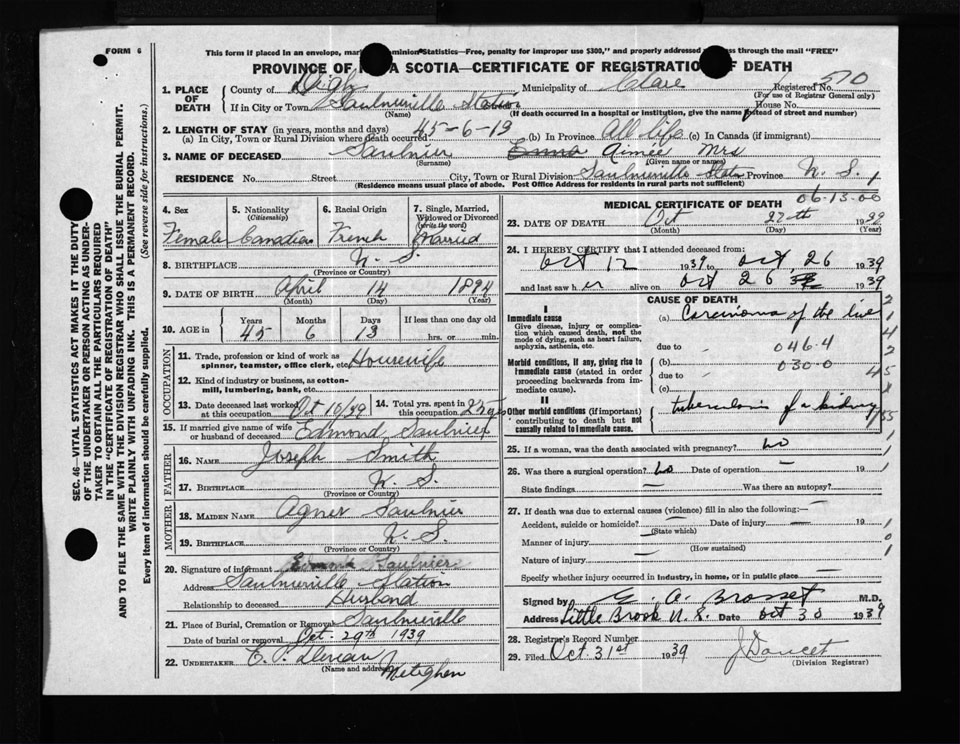 FORM 6
This form if placed in an envelope, mar ominion Statistics—Free, penalty for improper use $300," and properly addressed s through the mail "FREE"
PROVINCE OF A SCOTIA—CERTIFICATE OF REGISTRATION OF DEATH
1. PLACE OF DEATH County of Digby Municipality of Clare Registered No. 570
(For use of Registrar General only)
If in City or Town Saulnierville Station House No.
(Name) (If death occurred in a hospital or institution, give the name instead of street and number)
2. LENGTH OF STAY (in years, months and days)
(a) In City, Town or Rural Division where death occurred 45-6-13 (b) In Province All life (c) In Canada (if immigrant)
3. NAME OF DECEASED Saulnier Emma Aimée Mrs
(Surname) (Given name or names)
RESIDENCE No. Street City, Town or Rural Division Saulnierville Station Province N. S.
(Residence means usual place of abode. Post Office Address for residents in rural parts not sufficient)
4. Sex Female
5. Nationality (Citizenship) Canadian
6. Racial Origin French
7. Single, Married, Widowed or Divorced (write the word) Married
8. BIRTHPLACE N. S.
(Province or Country)
9. DATE OF BIRTH April 14 1894
(Month) (Day) (Year)
10. AGE in Years Months Days If less than one day old
45 6 13 hrs. or min.
OCCUPATION
11. Trade, profession or kind of work as spinner, teamster, office clerk, etc. Housewife
12. Kind of industry or business, as cotton-mill, lumbering, bank, etc.
13. Date deceased last worked at this occupation Oct 10/39
14. Total yrs. spent in this occupation 25 yrs
15. If married give name of wife or husband of deceased Edmond Saulnier
FATHER
16. NAME Joseph Smith
17. BIRTHPLACE N. S.
(Province or Country)
MOTHER
18. MAIDEN NAME Agnes Saulnier
19. BIRTHPLACE N. S.
(Province or Country)
20. Signature of informant Edmond Saulnier
Address Saulnierville Station
Relationship to deceased Husband
21. Place of Burial, Cremation or Removal Saulnierville
Date of burial or removal Oct. 29th 1939
22. UNDERTAKER
(Name and address) Meteghan
MEDICAL CERTIFICATE OF DEATH
06-13-00
23. DATE OF DEATH Oct 27th
(Month) (Day) (Year)
24. I HEREBY CERTIFY that I attended deceased from:
Oct 12 1939 to Oct 26 1939
and last saw her alive on Oct 26 1939
CAUSE OF DEATH
Immediate cause
Give disease, injury or complication which caused death, not the mode of dying, such as heart failure, asphyxia, asthenia, etc.
(a) Carcinoma of the liver
due to 046.4
Morbid conditions, if any, giving rise to immediate cause (stated in order proceeding backwards from immediate cause).
(b) 030.0
due to
(c)
II
Other morbid conditions (if important) contributing to death but not causally related to immediate cause.
tuberculosis of a kidney
25. If a woman, was the death associated with pregnancy? No
26. Was there a surgical operation? No Date of operation — 19
State findings — Was there an autopsy? —
27. If death was due to external causes (violence) fill in also the following:—
Accident, suicide or homicide? — Date of injury — 19
(State which)
Manner of injury —
(How sustained)
Nature of injury —
Specify whether injury occurred in industry, in home, or in public place —
Signed by M.D.
Address Little Brook N. S. Date Oct 30 1939
28. Registrar's Record Number
29. Filed Oct. 31st 1939 J Doucet
(Division Registrar)
SEC. 46—VITAL STATISTICS ACT MAKES IT THE DUTY
OF THE UNDERTAKER OR PERSON ACTING AS UNDER-
TAKER TO OBTAIN ALL THE PARTICULARS REQUIRED
IN THE "CERTIFICATE OF REGISTRATION OF DEATH"
AND TO FILE THE SAME WITH THE DIVISION REGISTRAR WHO SHALL ISSUE THE BURIAL PERMIT.
WRITE PLAINLY WITH UNFADING INK. THIS IS A PERMANENT RECORD.
Every item of information should be carefully supplied. (See reverse side for instructions.)